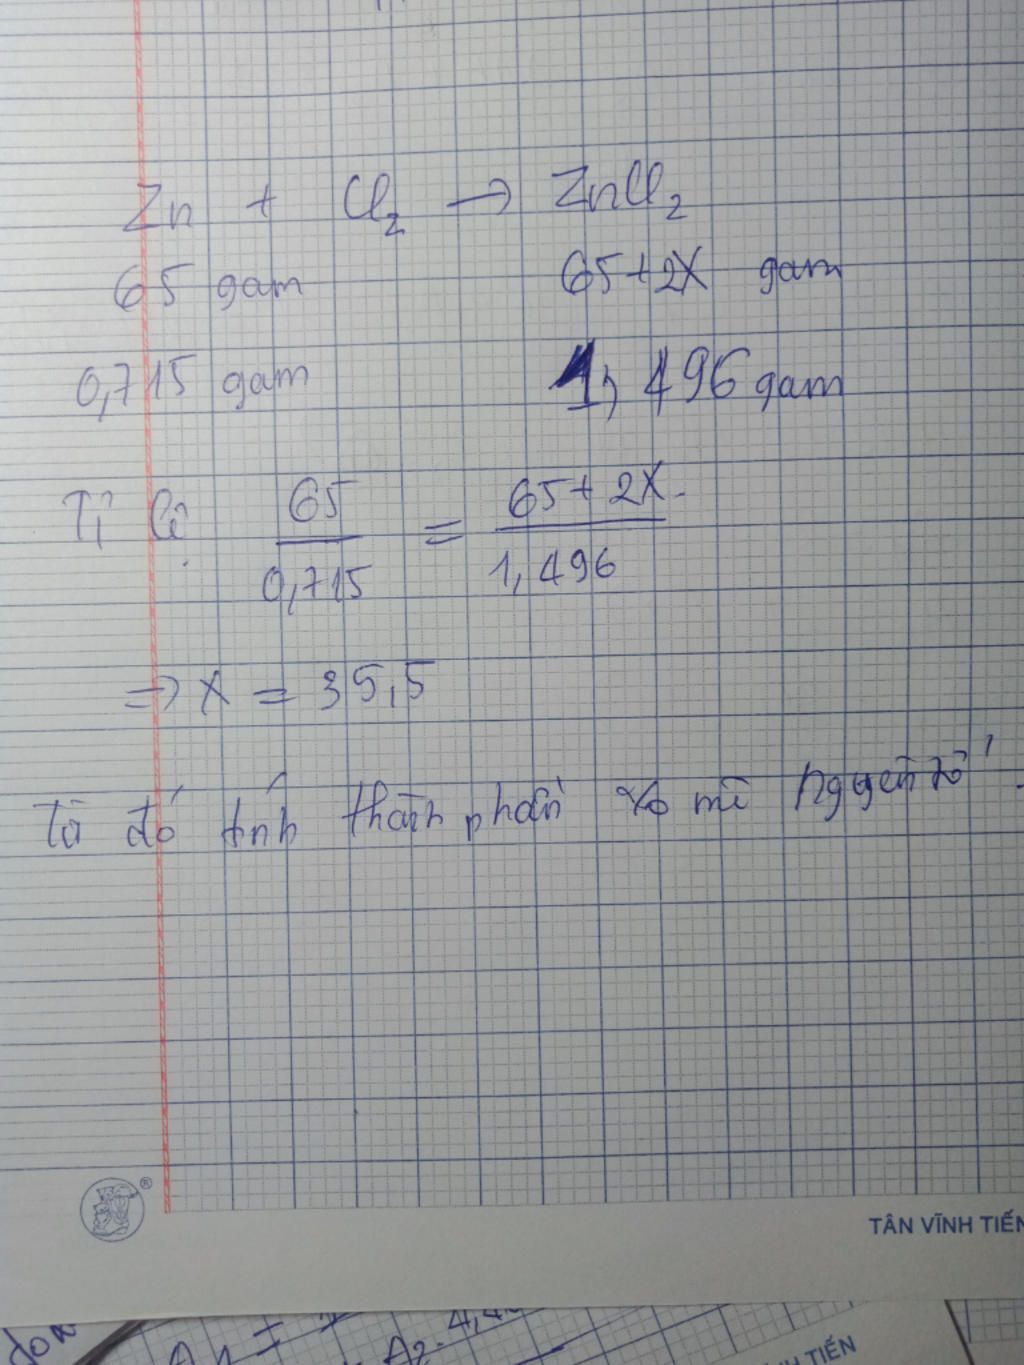 Zn + Cl2 → ZnCl2
65 gam 65+2X gam
0,715 gam 1,496 gam
Tỉ lệ 65/0,715 = 65+2X/1,496
=> X = 35,5
Từ đó tính thành phần % mỗi nguyên tố
®
TÂN VĨNH TIẾN
TIẾN